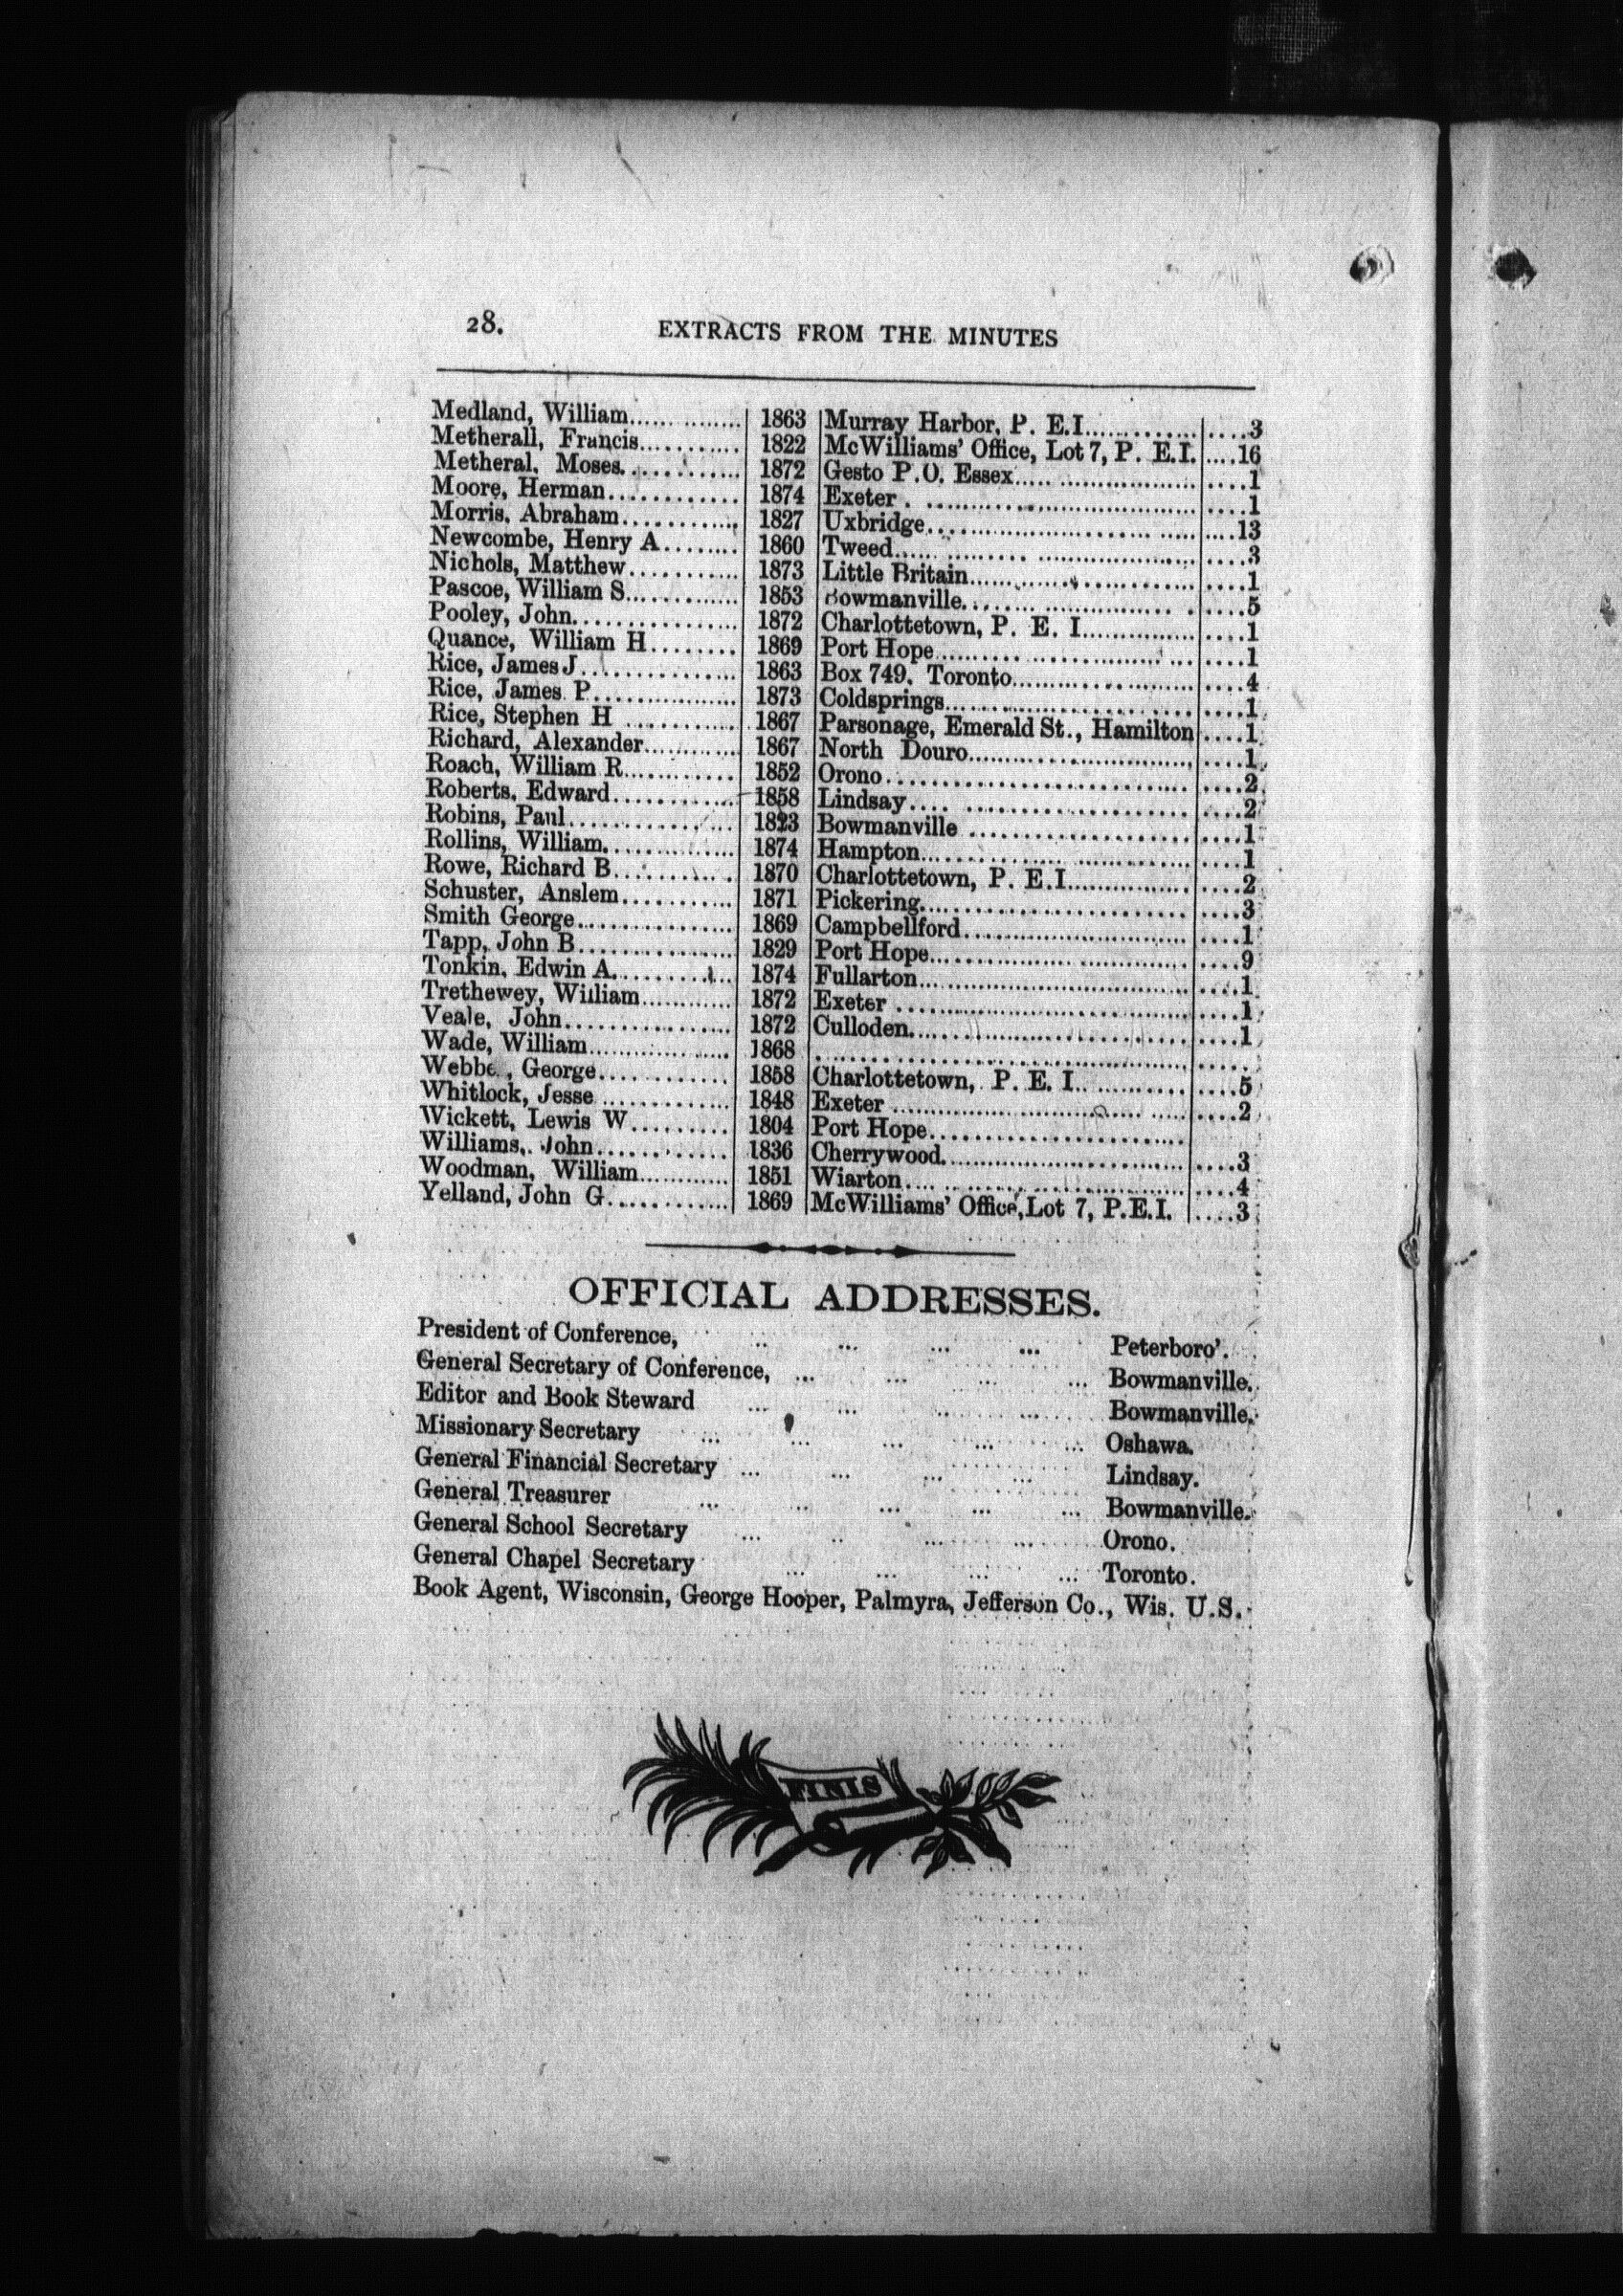 28. EXTRACTS FROM THE MINUTES
Medland, William.............. 1863 Murray Harbor, P. E.I............. ....3
Metherall, Francis........... 1822 McWilliams' Office, Lot 7, P. E.I. ....16
Metheral. Moses............. 1872 Gesto P.O. Essex................... ....1
Moore, Herman............. 1874 Exeter . ......................... ....1
Morris. Abraham............ 1827 Uxbridge......................... ....13
Newcombe, Henry A........ 1860 Tweed............................ ....3
Nichols, Matthew........... 1873 Little Britain..................... ....1
Pascoe, William S............. 1853 Bowmanville...................... ....5
Pooley, John................ 1872 Charlottetown, P. E. I............. ....1
Quance, William H........ 1869 Port Hope........................ ....1
Rice, James J............... 1863 Box 749. Toronto.................. ....4
Rice, James P.............. 1873 Coldsprings....................... ....1
Rice, Stephen H ........... 1867 Parsonage, Emerald St., Hamilton ....1
Richard, Alexander........... 1867 North Douro...................... ....1
Roach, William R........... 1852 Orono............................ ....2
Roberts. Edward............ 1858 Lindsay.... ...................... ....2
Robins, Paul................ 1823 Bowmanville ..................... ....1
Rollins, William............. 1874 Hampton......................... ....1
Rowe, Richard B........... 1870 Charlottetown, P. E.I.............. ....2
Schuster, Anslem........... 1871 Pickering......................... ....3
Smith George................. 1869 Campbellford..................... ....1
Tapp, John B................ 1829 Port Hope........................ ....9
Tonkin. Edwin A........... 1874 Fullarton......................... ....1
Trethewey, William............ 1872 Exeter ........................... ....1
Veale, John................. 1872 Culloden......................... ....1
Wade, William................ 1868 ................................. .....
Webbe, George............. 1858 Charlottetown, P. E. I............. ....5
Whitlock, Jesse ............. 1848 Exeter ........................... ....2
Wickett, Lewis W......... 1804 Port Hope........................
Williams, John............. 1836 Cherrywood...................... ....3
Woodman, William............ 1851 Wiarton.......................... ....4
Yelland, John G............ 1869 McWilliams' Office, Lot 7, P.E.I. ....3
OFFICIAL ADDRESSES.
President of Conference, .. ... ... ... Peterboro'.
General Secretary of Conference, ... ... ... ... Bowmanville.
Editor and Book Steward ... ... ... ... Bowmanville.
Missionary Secretary ... ... ... ... ... Oshawa.
General Financial Secretary ... ... ... ... Lindsay.
General Treasurer ... ... ... ... ... Bowmanville.
General School Secretary ... .. ... ... Orono.
General Chapel Secretary ... ... ... ... Toronto.
Book Agent, Wisconsin, George Hooper, Palmyra, Jefferson Co., Wis. U.S.
FINIS